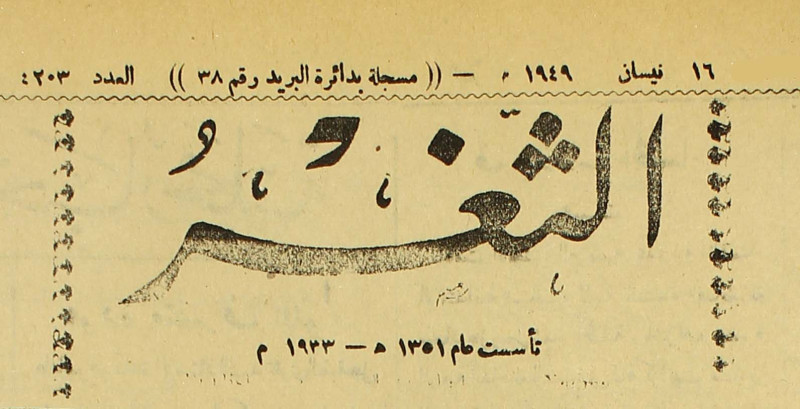 ١٦ نيسان ١٩٤٩ م — (( مسجلة بدائرة البريد رقم ٣٨ )) العدد ٤٢٠٣
الثَّغْرُ
تأسست عام ١٣٥١ ه — ١٩٣٣ م